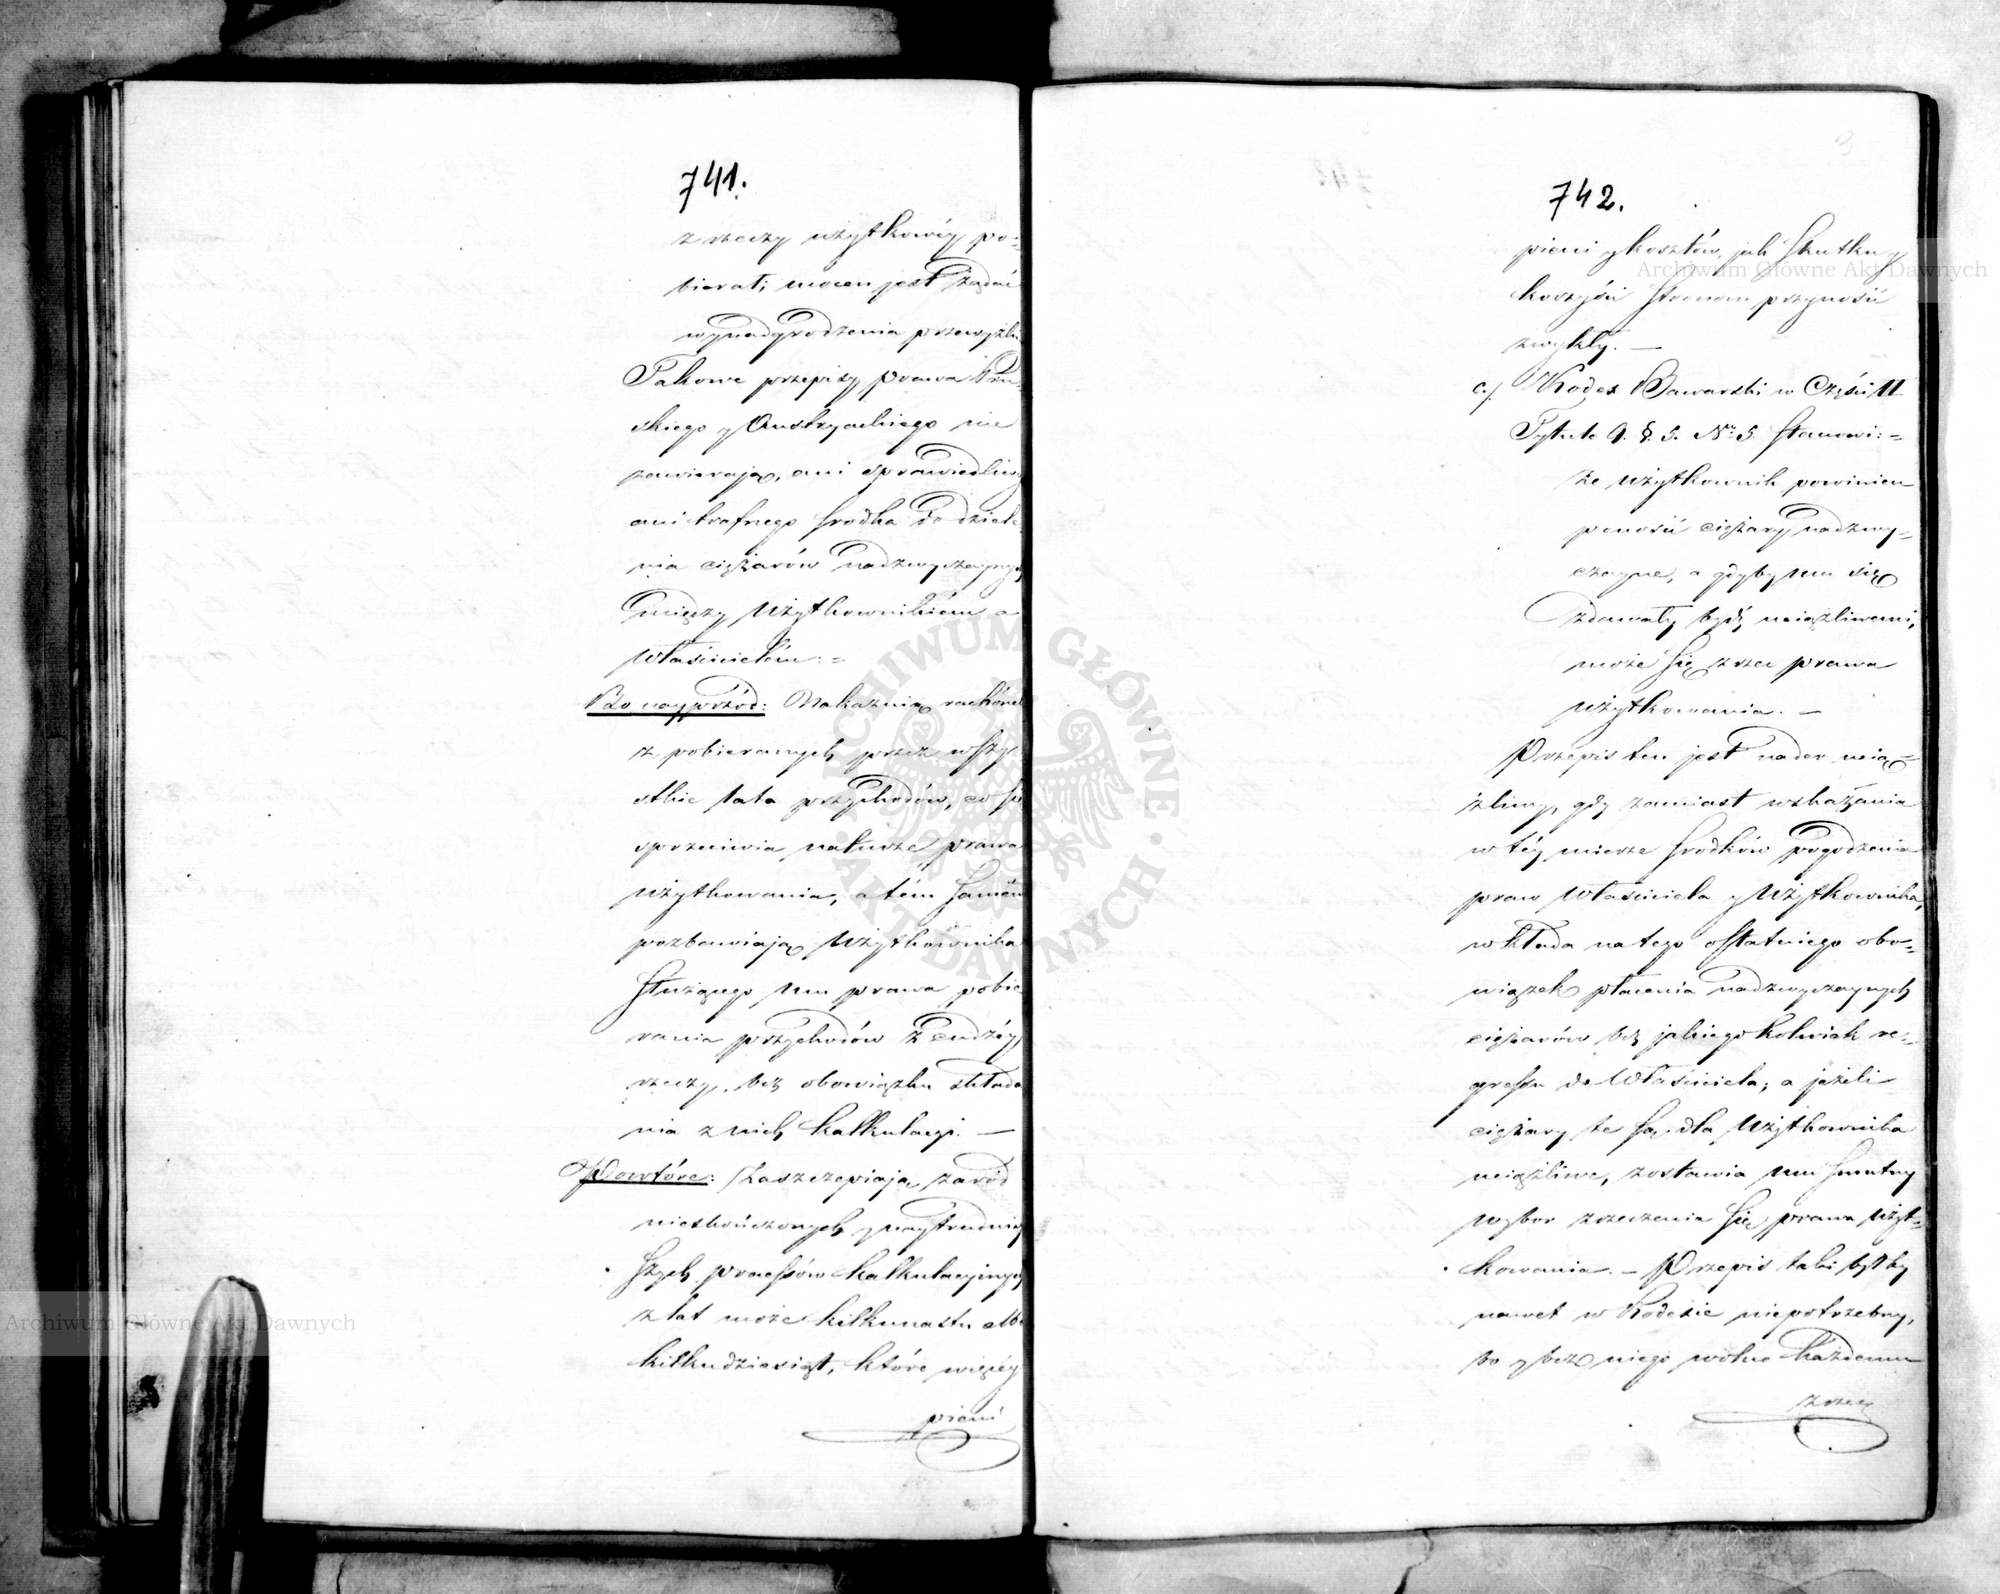 741.
z rzeczy użytkowéy po-
bierał; mocen jest żądać
wynadgrodzenia przewyżki
Takowe przepisy prawa Pru-
skiego y Austryackiego nie
zawierają, ani sprawiedliwego
ani trafnego srodka do dziele-
nia ciężarów nadzwyczaynych
między Użytkownikiém a
Właścicielém:=
Bo nayprzód: Nakaznią rachónek
z pobieranych przez wszy-
stkie lata przychodów, co się
sprzeciwia naturze prawa
użytkowania, a tém samém
pozbawiają Użytkownika
służącego mu prawa pobie
rania przychodów z cudzéy
rzeczy, bez obowiązku składa
nia z nich kalkulacyi. —
Powtóre: Zaszczepiają zaród
nieskończonych y naytrudniey
szych processów kalkulacyinych
z lat może kilkunastu albo
kilkudziesiąt, które więcéy
pieni
742.
pieni y kosztów, jak skutku y
korzyści stronom przynosić
zwykły. —
c./ Kodex Bawarski w Części II
Tytule 9. §. 5. Nº 5. stanowi:=
że użytkownik powinien
ponosić ciężary nadzwy=
czayne, a gdyby mu się
zdawały bydź uciążliwemi,
może się zrzec prawa
użytkowania. —
Przepis ten jest nader ucią=
żliwy, gdy zamiast wskazania
w téy mierze srodków pogodzenia
praw Właściciela y Użytkownika,
wkłada na tego ostatniego obo=
wiązek płacenia nadzwyczaynych
ciężarów bez jakiegokolwiek re=
gressu do Właściciela; a jeżeli
ciężary te są dla Użytkownika
uciążliwe, zostawia mu smutny
wybor zrzeczenia się prawa użyt=
kowania. — Przepis taki byłby
nawet w Kodexie niepotrzebny,
bo y bez niego wolno każdemu
zrzec
Archiwum Główne Akt Dawnych
Archiwum Główne Akt Dawnych
ARCHIWUM GŁÓWNE · AKT DAWNYCH ·